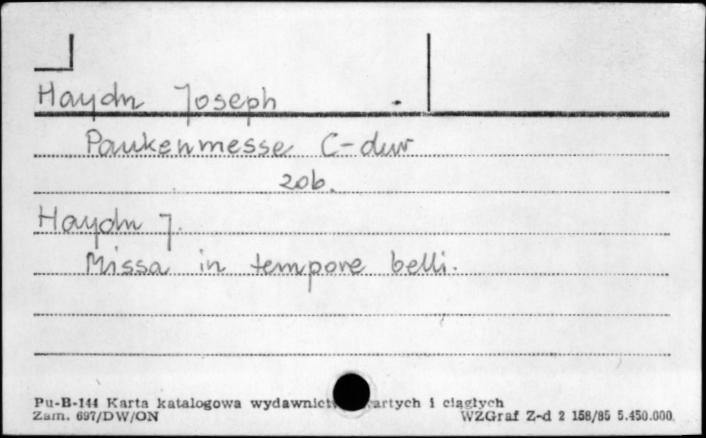 Haydn Joseph
Paukenmesse C-dur
zob.
Haydn J.
Missa in tempore belli.
Pu-B-144 Karta katalogowa wydawnict wartych i ciągłych
Zam. 697/DW/ON WZGraf Z-d 2 158/85 5.450.000